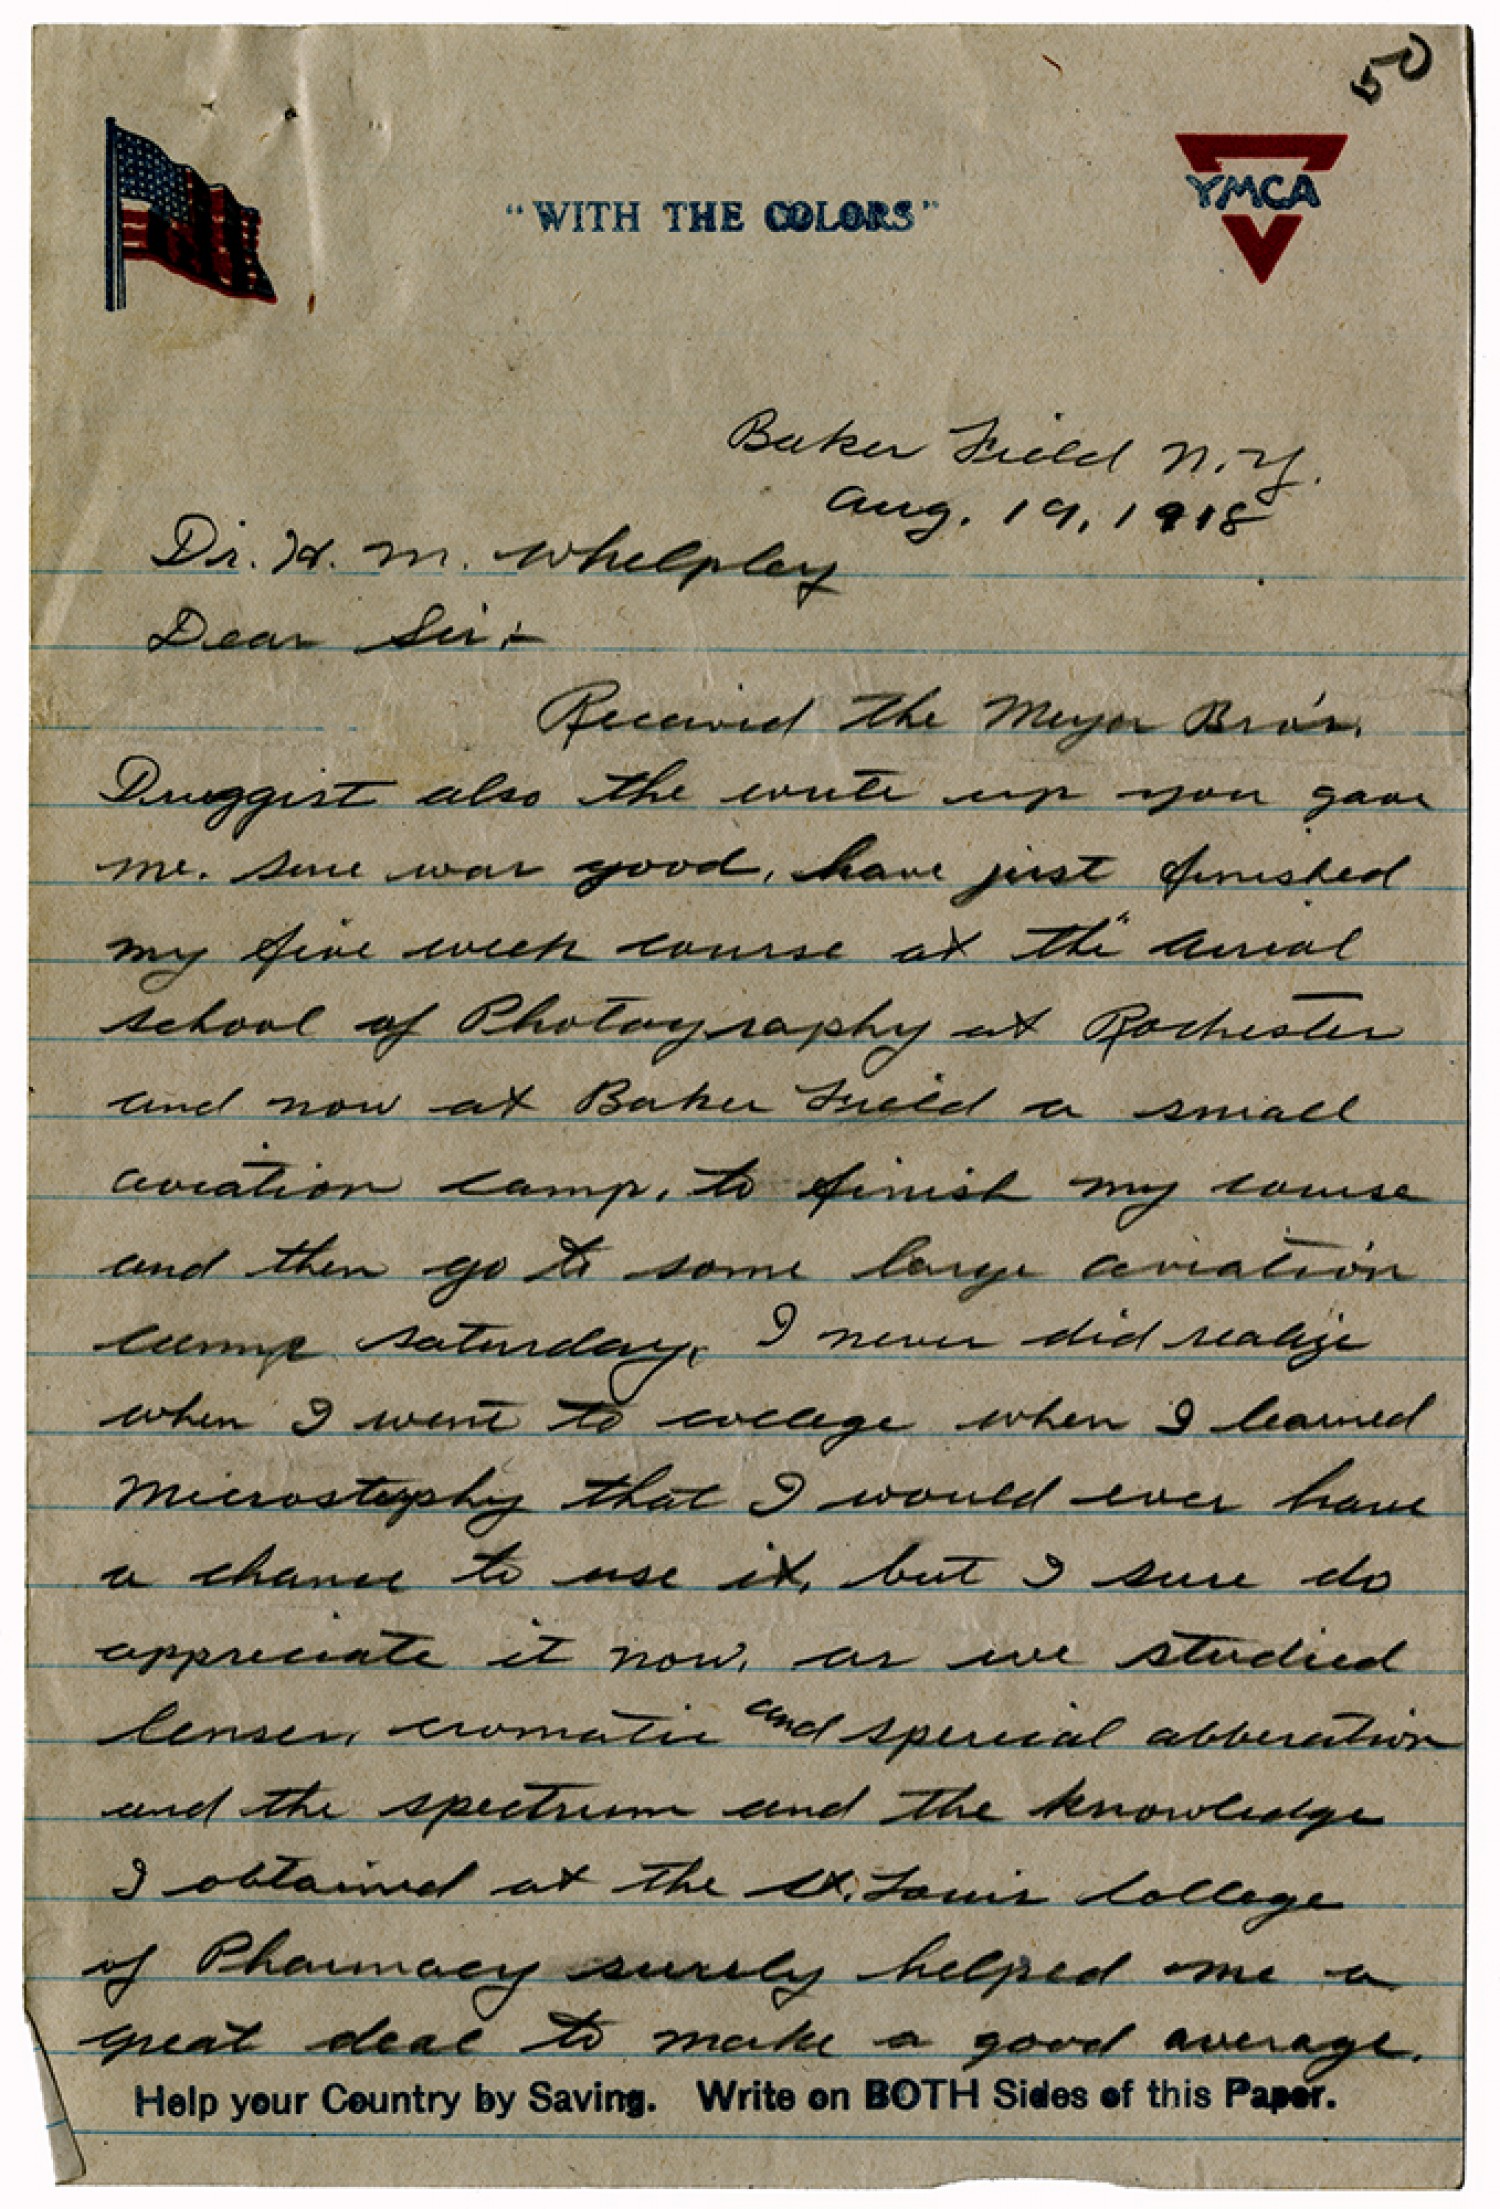 50
"WITH THE COLORS"
YMCA
Baker Field N.Y.
Aug. 19, 1918
Dr. H. M. Whelpley
Dear Sir:-
Received the Meyer Bro's.
Druggist also the write up you gave
me. sure was good, have just finished
my five week course at the "Aerial
school of Photography at Rochester
and now at Baker Field a small
aviation camp, to finish my course
and then go to some large aviation
camp saturday. I never did realize
when I went to college when I learned
that I would ever have
a chance to use it, but I sure do
appreciate it now, as we studied
lenses, cromatic and sperical abberation
and the spectrum and the knowledge
I obtained at the St. Louis College
of Pharmacy surely helped me a
great deal to make a good average.
Help your Country by Saving. Write on BOTH Sides of this Paper.